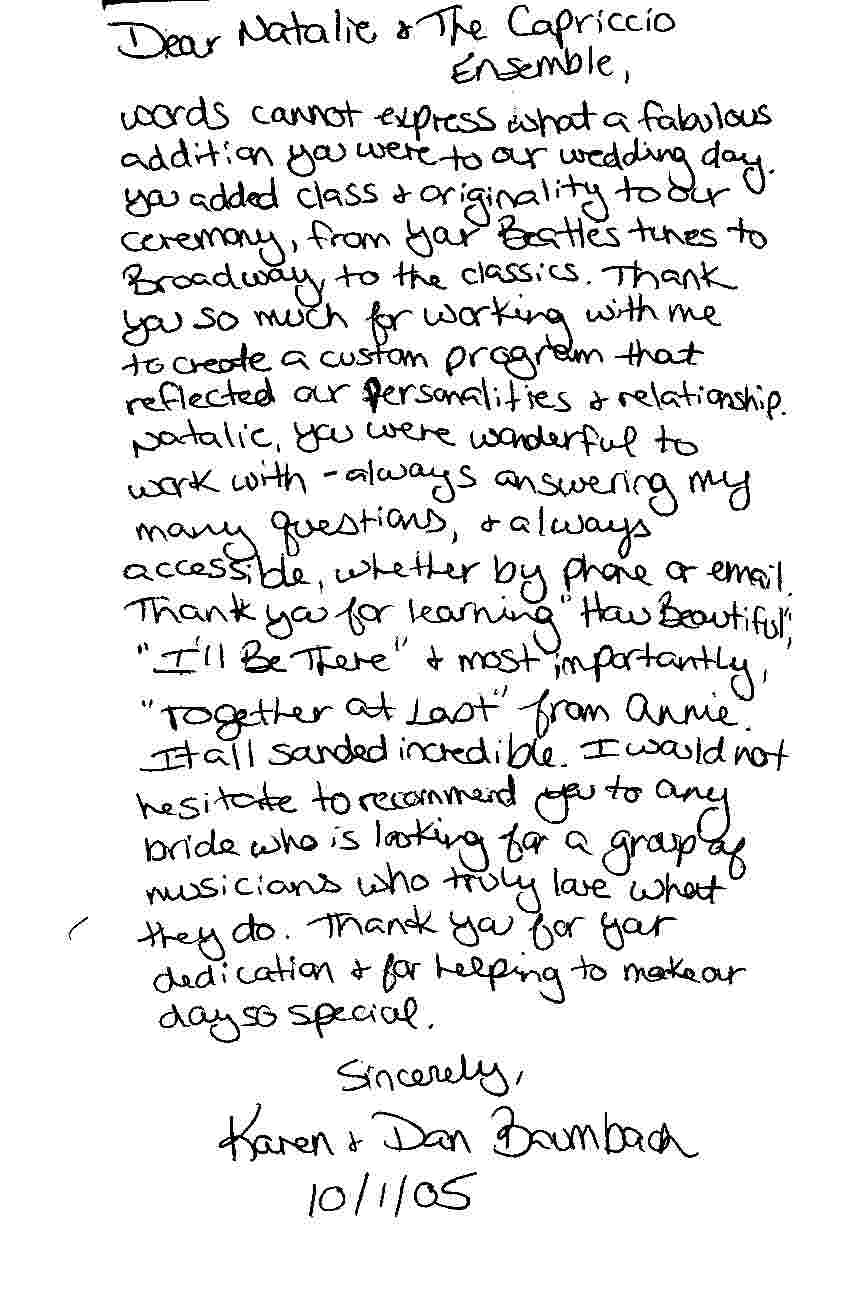 Dear Natalie & The Capriccio
Ensemble,
words cannot express what a fabulous
addition you were to our wedding day.
You added class & originality to our
ceremony, from your Beatles tunes to
Broadway, to the classics. Thank
you so much for working with me
to create a custom program that
reflected our personalities & relationship.
Natalie, you were wonderful to
work with - always answering my
many questions, & always
accessible, whether by phone or email.
Thank you for learning "How Beautiful",
"I'll Be There" & most importantly,
"Together at Last" from Annie.
It all sounded incredible. I would not
hesitate to recommend you to any
bride who is looking for a group of
musicians who truly love what
they do. Thank you for your
dedication & for helping to make our
day so special.
Sincerely,
Karen & Dan Baumbach
10/1/05